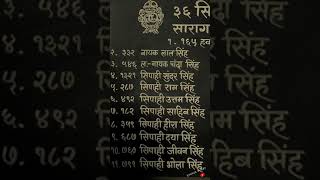 ३६ सि
साराग
१ . १६५ हव
२. ३३२ नायक लाल सिंह
३. ५४६ ल.-नायक चंदा सिंह
४. १३२१ सिपाही सुंदर सिंह
५. २८७ सिपाही राम सिंह
६. ४९२ सिपाही उत्तम सिंह
७. १८२ सिपाही साहिब सिंह
८. ३५९ सिपाही हीरा सिंह
९. ६८७ सिपाही दया सिंह
१०. ७६७ सिपाही जीवन सिंह
११. ७९१ सिपाही भोला सिंह